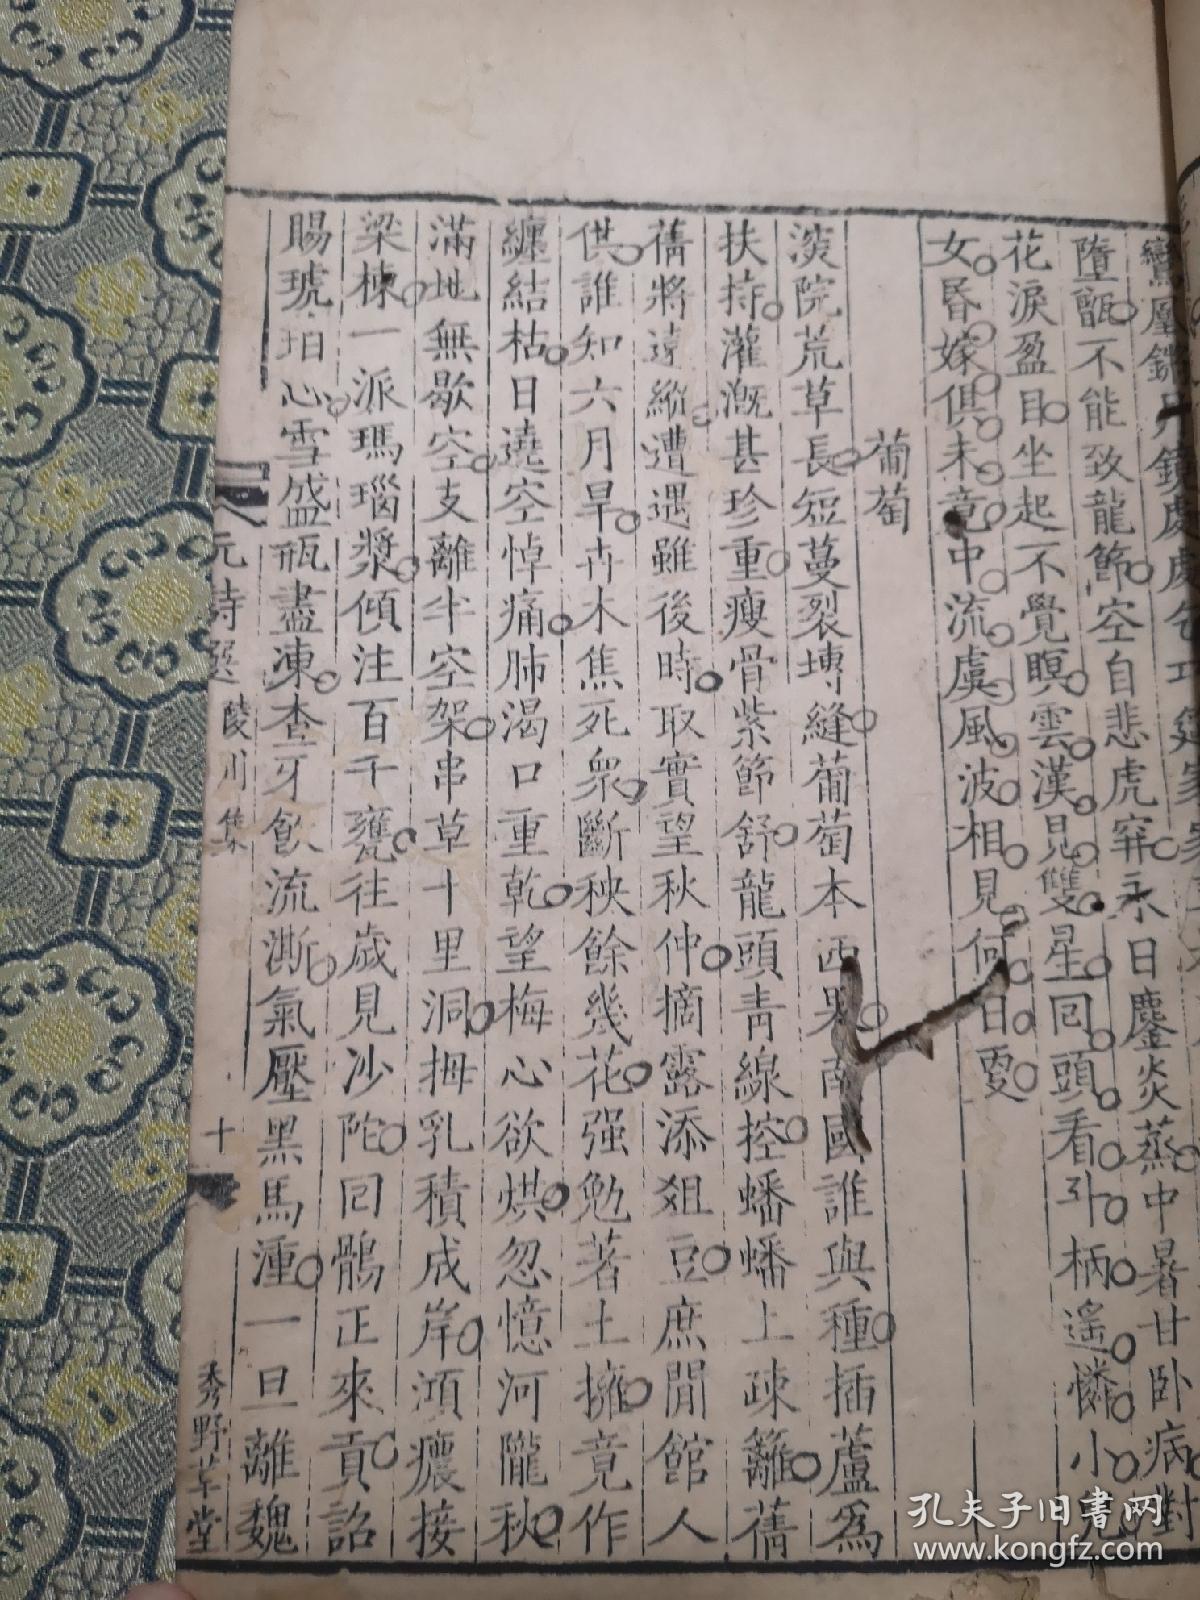 墮甑不能致龍節空自悲虎穽永日鏖炎蒸中暑甘卧病對
花淚盈目坐起不覺瞑雲漢見雙星回頭看斗柄遙憐小兒
女昏嫁俱未竟中流虞風波相見何日更
葡萄
淡院荒草長短蔓裂塼縫葡萄本西果南國誰與種插蘆爲
扶持灌漑甚珍重瘦骨紫節舒龍頭青線控蟠蟠上疎籬蒨
蒨將遠縱遭遇雖後時取實望秋仲摘露添爼豆庶閒館人
供誰知六月旱卉木焦死衆斷秧餘幾花强勉著土擁竟作
纏結枯日遶空悼痛肺渴口重乾望梅心欲烘忽憶河隴秋
滿地無歇空支離半空架串草十里洞拇乳積成岸澒癑接
梁棟一派瑪瑙漿傾注百千甕往歲見沙陀回鶻正來貢詔
賜琥珀心雪盛瓶盡凍查牙飮流澌氣壓黑馬湩一旦離魏
元詩選 陵川集 十 秀野草堂
孔夫子旧書网
www.kongfz.com